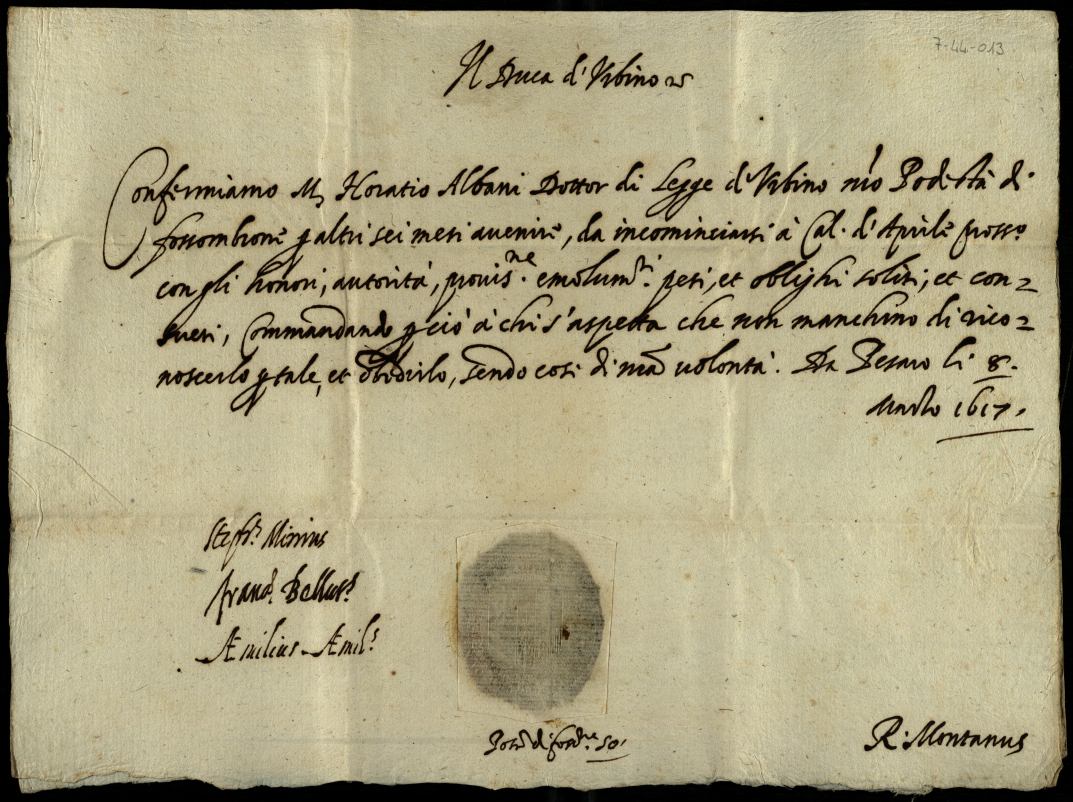 7-44-013
Il Duca d'Urbino
Confermiamo M. Horatio Albani Dottor di Legge d'Urbino nr̃o Podestà di
fossombrone ꝑ altri sei mesi avenire, da incominciarsi à Cal. d'Aprile pross.º
con gli honori, autorità, provis.ne emolum.ti pesi, et oblighi soliti, et con=
sueti, Commandando ꝑ ciò à chi s'aspetta che non manchino di rico=
noscerlo ꝑ tale, et obedirlo, sendo così di nr̃a volontà. Da Pesaro li 8.
Marzo 1617.
Minius
Æmilius Æmil.s
Pod.à di 50
R. Montanus